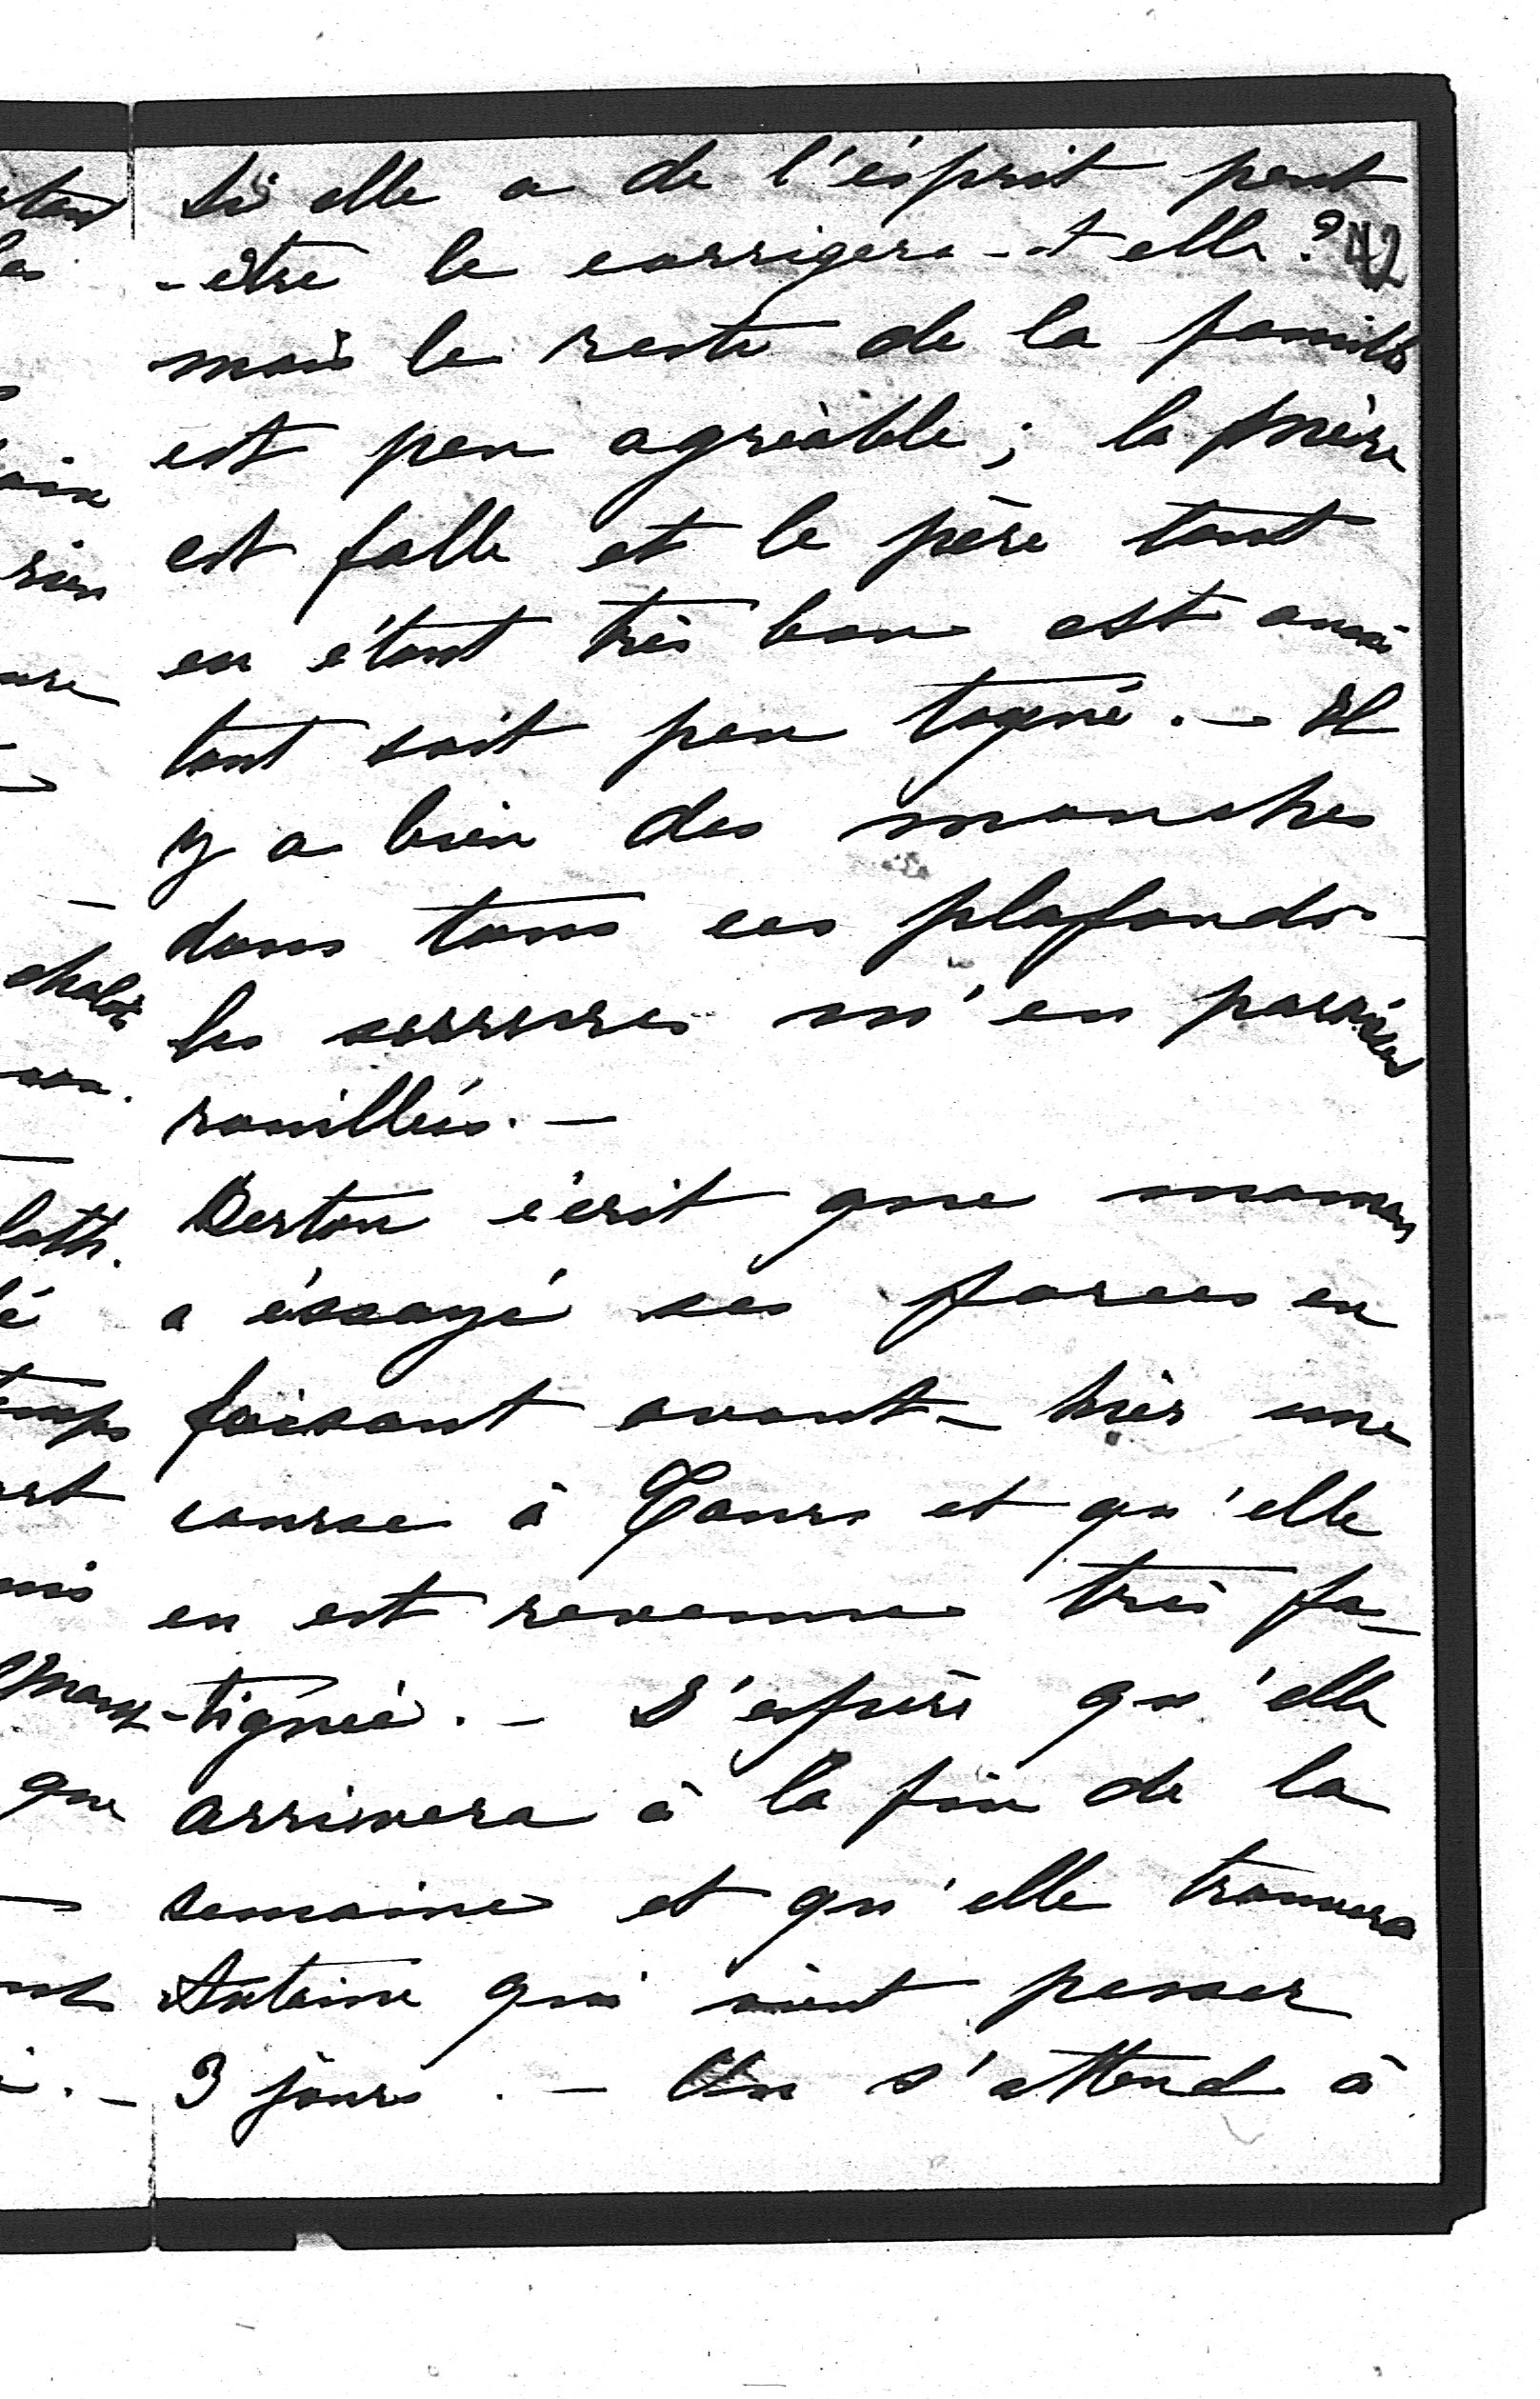 Si elle a de l'ésprit peut
-être le corrigera-t elle ? 42
mais le reste de la famille
est peu agréable ; la mère
est folle et le père tout
en étant très bon est aussi
tant soit peu toqué. — Il
y a bien des mouches
dans tous ces plafonds —
les serrures m'en paraissent
rouillées. —
Berton écrit que maman
a éssayé ses forces en
faisant avant-hier une
course à Tours et qu'elle
en est revenue très fa-
-tiguée. — J'espère qu'elle
arrivera à la fin de la
semaine et qu'elle trouvera
Antoine qui vient passer
3 jours. — On s'attend à